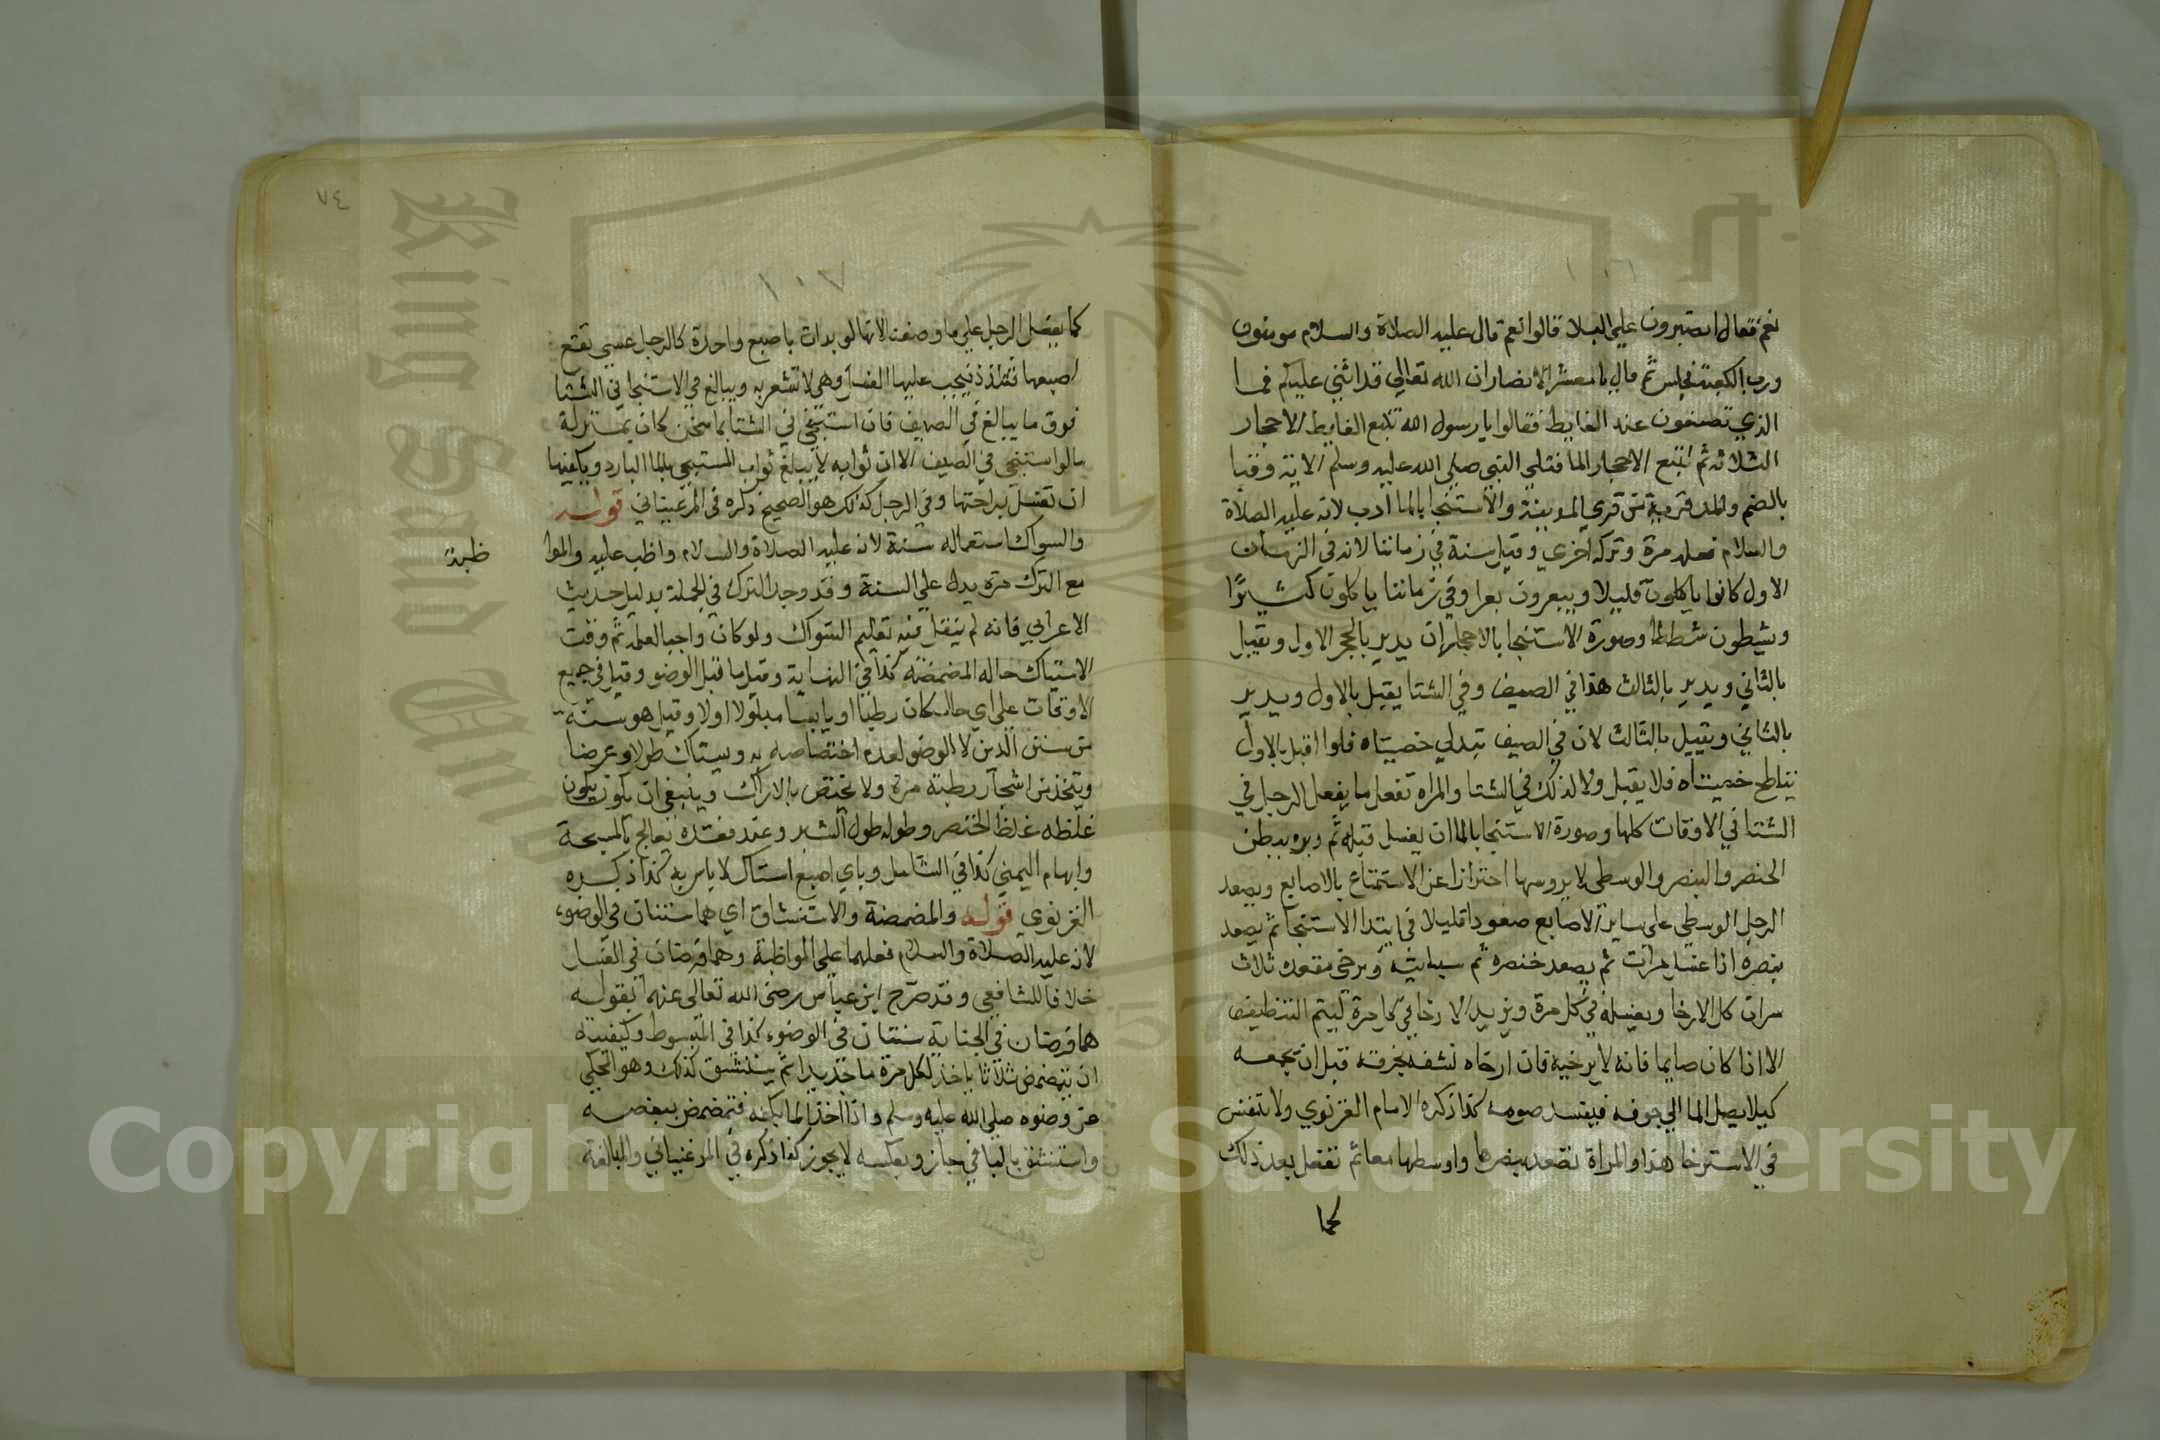 ١٠٦
نعم فقال اتصبرون على البلا قالوا نعم قال عليه الصلاة والسلام مومنون
ورب الكعبة فجلس ثم قال يا معشر الانصار ان الله تعالى قد اثنى عليكم فما
الذي تصنعون عند الغايط فقالوا يا رسول الله نتبع الغايط الاحجار
الثلاثة ثم نتبع الاحجار الما فتلى النبي صلى الله عليه وسلم الاية وقبا
بالضم والمد قرية من قري المدينة والاستنجا بالما ادب لانه عليه الصلاة
والسلام فعله مرة وتركه اخري وقيل سنة في زماننا لانه في الزمان
الاول كانوا ياكلون قليلا ويبعرون بعرا وفي زماننا ياكلون كثيرا
وصورة الاستنجا بالاحجار ان يدبر بالحجر الاول ويقبل
بالثاني ويدبر بالثالث هذا في الصيف وفي الشتا يقبل بالاول ويدبر
بالثاني ويقبل بالثالث لان في الصيف تتدلي خصيتاه فلو اقبل بالاول
خصيتاه فلا يقبل ولا لذلك في الشتا والمراة تفعل ما يفعل الرجل في
الشتا في الاوقات كلها وصورة الاستنجا بالما ان يغسل قبله ثم دبره ببطن
الخنصر والبنصر والوسطي لا بروسها احترازا عن الاستمتاع بالاصابع ويصعد
الرجل الوسطي على ساير الاصابع صعودا قليلا في ابتدا الاستنجا ثم يصعد
بنصره اذا غسل مرات ثم يصعد خنصره ثم سبابته ويرخي مقعده ثلاث
مرات كل الارخا ويغسله في كل مرة ويزيد الارخا في كل مرة ليتم التنظيف
الا اذا كان صايما فانه لا يرخيه فان ارخاه نشفه بخرقة قبل ان يجمعه
كيلا يصل الما الي جوفه فيفسد صومه كذا ذكره الامام الغزنوي ولا يتنفس
في الاسترخا هذا والمراة تصعد بنصرها واوسطها معا ثم تفعل بعد ذلك
كما
٧٤
١٠٧
كما يفعل الرجل على ما وصفنا لانها لو بدات باصبع واحدة كالرجل عسي تقع
اصبعها فيجب عليها الغسل وهي لا تشعر به ويبالغ في الاستنجا في الشتا
فوق ما يبالغ في الصيف فان استنجى في الشتا بما سخن كان بمنزلة
مالو استنجى في الصيف الا ان ثوابه لا يبلغ ثواب المستنجي بالما البارد ويكفيها
ان تغسل براحتها وفي الرجل كذلك هو الصحيح ذكره في المرغيناني قوله
والسواك استعماله سنة لان عليه الصلاة والسلام واظب عليه والموا
ظبة
مع الترك مرة يدل على السنة وقد وجد الترك في الجملة بدليل حديث
الاعرابي فانه لم ينقل فيه تعليم السواك ولو كان واجبا لعلمه ثم وقت
الاستياك حاله المضمضة كذا في النهاية وقيل ما قبل الوضو وقيل في جميع
الاوقات على اي حال كان رطبا او يابسا مبلولا اولا وقيل هو سنة
من سنن الدين لا الوضو لعدم اختصاصه به ويستاك طولا وعرضا
ويتخذ من اشجار رطبة مرة ولا يختص بالاراك وينبغي ان يكون
غلظه غلظ الخنصر وطوله طول الشبر وعند فقده يعالج بالمسبحة
وابهام اليمني كذا في الشامل وباي اصبع استاك لا باس به كذا ذكره
الغزنوي قوله والمضمضة والاستنشاق اي هما سنتان في الوضوء
لانه عليه الصلاة والسلام فعلهما على المواظبة وهما فرضان في الغسل
خلافا للشافعي وقد صرح ابن عباس رضي الله تعالى عنهما بقوله
هما فرضان في الجنابة سنتان في الوضوء كذا في المبسوط وكيفيته
ان يتمضمض ثلاثا ياخذ لكل مرة ما جديدا ثم يستنشق كذلك وهو المحكي
عن وضوه صلى الله عليه وسلم واذا اخذ الما بكفه فتمضمض ببعضه
واستنشق بالباقي جاز وبعكسه لا يجوز كذا ذكره في المرغيناني والمبالغة
King Saud University
Copyright © King Saud University